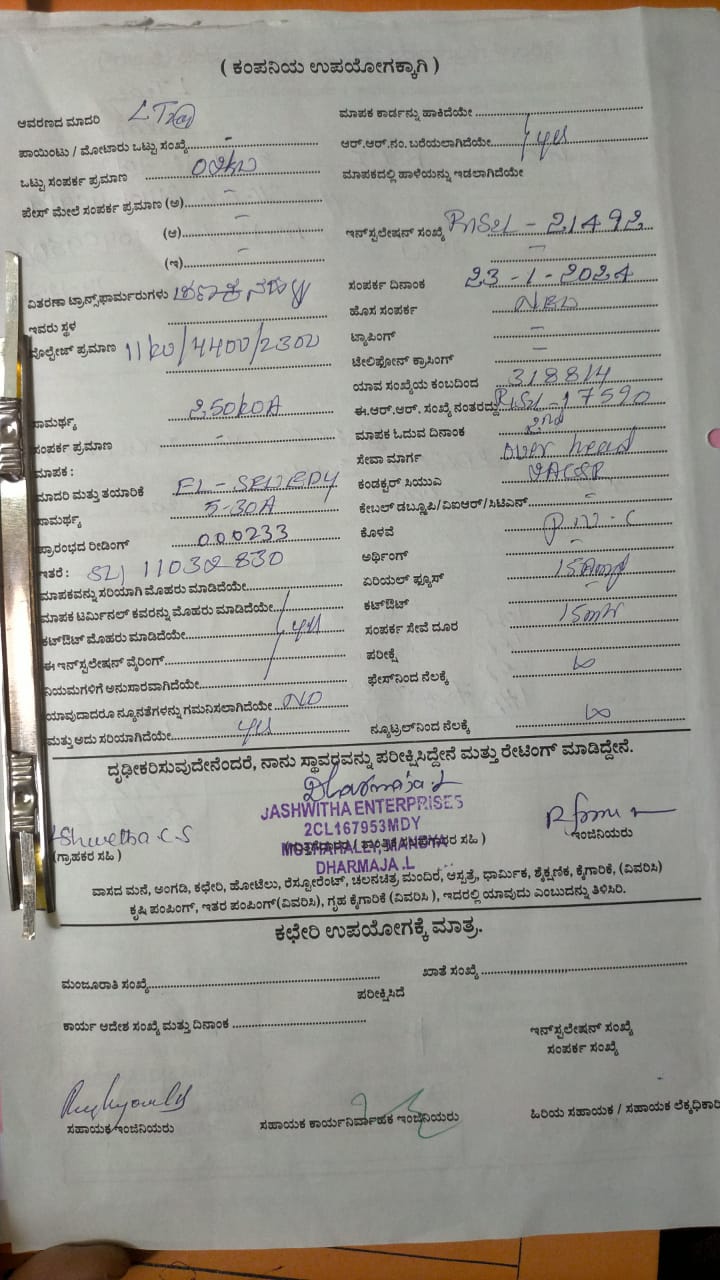 ( ಕಂಪನಿಯ ಉಪಯೋಗಕ್ಕಾಗಿ )
ಆವರಣದ ಮಾದರಿ
ಮಾಪಕ ಕಾರ್ಡನ್ನು ಹಾಕಿದೆಯೇ
ಪಾಯಿಂಟು / ಮೋಟಾರು ಒಟ್ಟು ಸಂಖ್ಯೆ -
ಆರ್.ಆರ್.ನಂ. ಬರೆಯಲಾಗಿದೆಯೇ yes
ಒಟ್ಟು ಸಂಪರ್ಕ ಪ್ರಮಾಣ
ಮಾಪಕದಲ್ಲಿ ಹಾಳೆಯನ್ನು ಇಡಲಾಗಿದೆಯೇ
ಪೇಸ್ ಮೇಲೆ ಸಂಪರ್ಕ ಪ್ರಮಾಣ (ಅ) -
(ಆ) -
ಇನ್‌ಸ್ಟಲೇಷನ್ ಸಂಖ್ಯೆ - 21492
(ಇ) -
ವಿತರಣಾ ಟ್ರಾನ್ಸ್‌ಫಾರ್ಮರುಗಳು
ಸಂಪರ್ಕ ದಿನಾಂಕ 23-1-2024
ಇವರು ಸ್ಥಳ
ಹೊಸ ಸಂಪರ್ಕ NEW
ವೋಲ್ಟೇಜ್ ಪ್ರಮಾಣ 11kv/4400/230v
ಟ್ಯಾಪಿಂಗ್ -
ಟೆಲಿಫೋನ್ ಕ್ರಾಸಿಂಗ್ -
ಯಾವ ಸಂಖ್ಯೆಯ ಕಂಬದಿಂದ 318814
ಸಾಮರ್ಥ್ಯ 250kVA
ಈ.ಆರ್.ಆರ್. ಸಂಖ್ಯೆ ನಂತರದ್ದು - 17590
ಸಂಪರ್ಕ ಪ್ರಮಾಣ -
ಮಾಪಕ ಓದುವ ದಿನಾಂಕ 2nd
ಮಾಪಕ :
ಸೇವಾ ಮಾರ್ಗ over head
ಮಾದರಿ ಮತ್ತು ತಯಾರಿಕೆ EL-SEWEDY
ಕಂಡಕ್ಟರ್ ಸಿಯುವಿ
ಸಾಮರ್ಥ್ಯ 5-30A
ಕೇಬಲ್ ಡಬ್ಲ್ಯೂಪಿ/ವಿಐಆರ್/ಸಿಟಿಎನ್ -
ಪ್ರಾರಂಭದ ರೀಡಿಂಗ್ 000233
ಕೊಳವೆ P.V.C
ಇತರೆ : SL/ 11032830
ಅರ್ಥಿಂಗ್ -
ಮಾಪಕವನ್ನು ಸರಿಯಾಗಿ ಮೊಹರು ಮಾಡಿದೆಯೇ
ಏರಿಯಲ್ ಫ್ಯೂಸ್ 15Amp
ಮಾಪಕ ಟರ್ಮಿನಲ್ ಕವರನ್ನು ಮೊಹರು ಮಾಡಿದೆಯೇ
ಕಟ್‌ಔಟ್ -
ಕಟ್‌ಔಟ್ ಮೊಹರು ಮಾಡಿದೆಯೇ yes
ಸಂಪರ್ಕ ಸೇವೆ ದೂರ
ಈ ಇನ್‌ಸ್ಟಲೇಷನ್ ವೈರಿಂಗ್
ಪರೀಕ್ಷೆ
ನಿಯಮಗಳಿಗೆ ಅನುಸಾರವಾಗಿದೆಯೇ
ಫೇಸ್‌ನಿಂದ ನೆಲಕ್ಕೆ ∞
ಯಾವುದಾದರೂ ನ್ಯೂನತೆಗಳನ್ನು ಗಮನಿಸಲಾಗಿದೆಯೇ NO
ಮತ್ತು ಅದು ಸರಿಯಾಗಿದೆಯೇ yes
ನ್ಯೂಟ್ರಲ್‌ನಿಂದ ನೆಲಕ್ಕೆ ∞
ದೃಢೀಕರಿಸುವುದೇನೆಂದರೆ, ನಾನು ಸ್ಥಾವರವನ್ನು ಪರೀಕ್ಷಿಸಿದ್ದೇನೆ ಮತ್ತು ರೇಟಿಂಗ್ ಮಾಡಿದ್ದೇನೆ.
Dharmaja.L
JASHWITHA ENTERPRISES
Shwetha C S
2CL167953MDY
(ಗ್ರಾಹಕರ ಸಹಿ )
MANDYA
ಇಂಜಿನಿಯರು
DHARMAJA .L
ವಾಸದ ಮನೆ, ಅಂಗಡಿ, ಕಛೇರಿ, ಹೋಟೆಲು, ರೆಸ್ಟೋರೆಂಟ್, ಚಲನಚಿತ್ರ, ಮಂದಿರ, ಆಸ್ಪತ್ರೆ, ಧಾರ್ಮಿಕ, ಶೈಕ್ಷಣಿಕ, ಕೈಗಾರಿಕೆ, (ವಿವರಿಸಿ)
ಕೃಷಿ ಪಂಪಿಂಗ್, ಇತರ ಪಂಪಿಂಗ್(ವಿವರಿಸಿ), ಗೃಹ ಕೈಗಾರಿಕೆ (ವಿವರಿಸಿ ), ಇದರಲ್ಲಿ ಯಾವುದು ಎಂಬುದನ್ನು ತಿಳಿಸಿರಿ.
ಕಛೇರಿ ಉಪಯೋಗಕ್ಕೆ ಮಾತ್ರ.
ಮಂಜೂರಾತಿ ಸಂಖ್ಯೆ
ಖಾತೆ ಸಂಖ್ಯೆ
ಪರೀಕ್ಷಿಸಿದೆ
ಕಾರ್ಯ ಆದೇಶ ಸಂಖ್ಯೆ ಮತ್ತು ದಿನಾಂಕ
ಇನ್‌ಸ್ಟಲೇಷನ್ ಸಂಖ್ಯೆ
ಸಂಪರ್ಕ ಸಂಖ್ಯೆ
ಸಹಾಯಕ ಇಂಜಿನಿಯರು
ಸಹಾಯಕ ಕಾರ್ಯನಿರ್ವಾಹಕ ಇಂಜಿನಿಯರು
ಹಿರಿಯ ಸಹಾಯಕ / ಸಹಾಯಕ ಲೆಕ್ಕಧಿಕಾರಿ